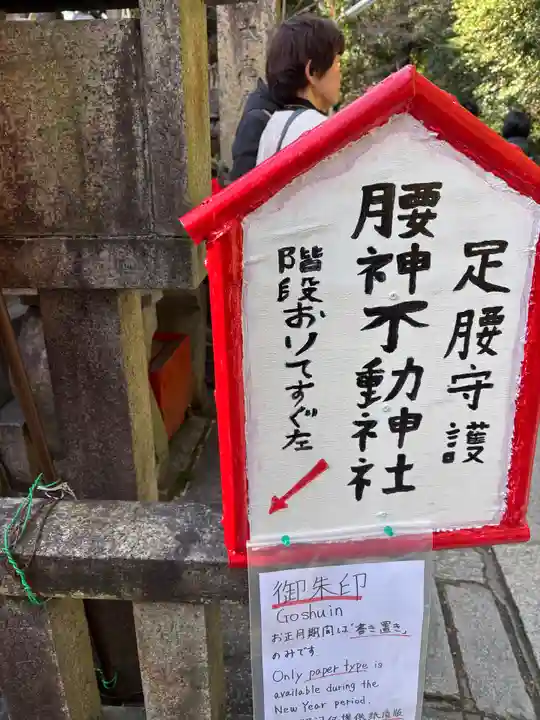 足腰守護
腰神不動神社
階段おりてすぐ左
御朱印
Goshuin
お正月期間は「書き置き」
のみです
Only paper type is
available during the
New Year period.